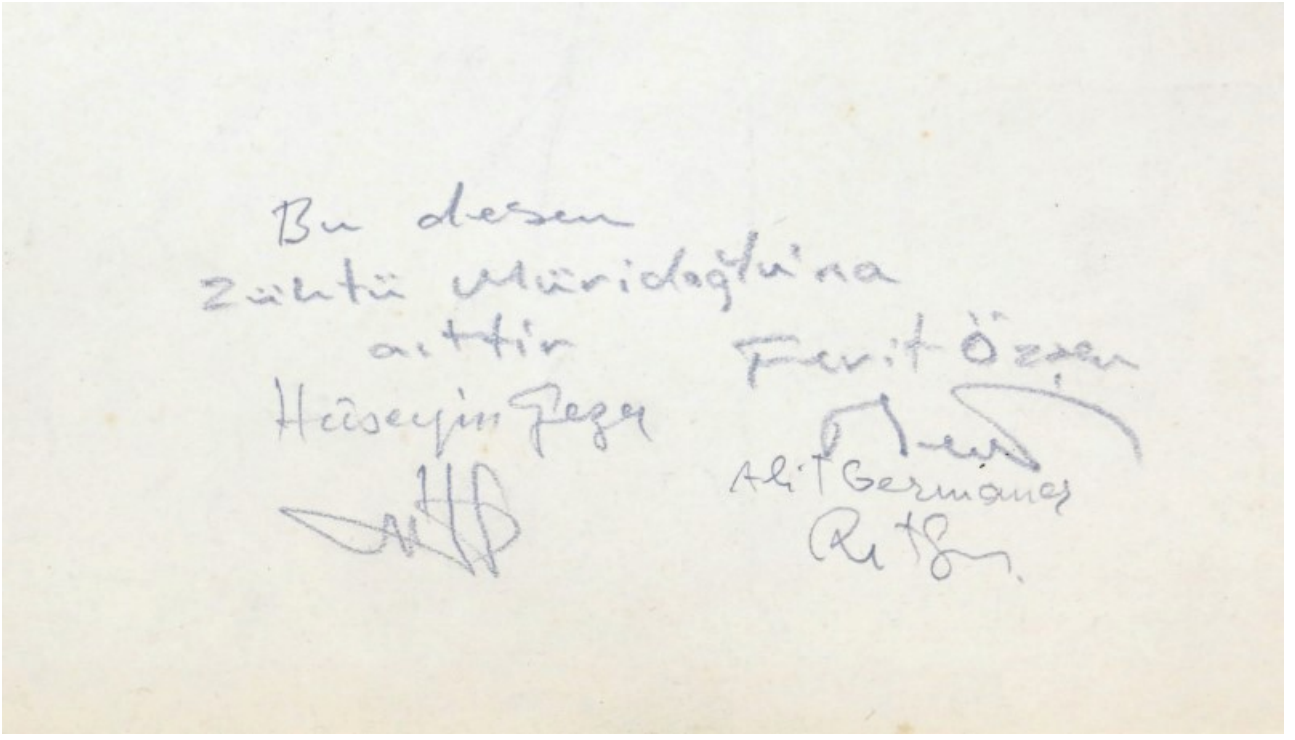 Bu desen
Zühtü Müridoğlu'na
aittir
Hüseyin Gezer
Ferit Özşen
Ali T Germaner